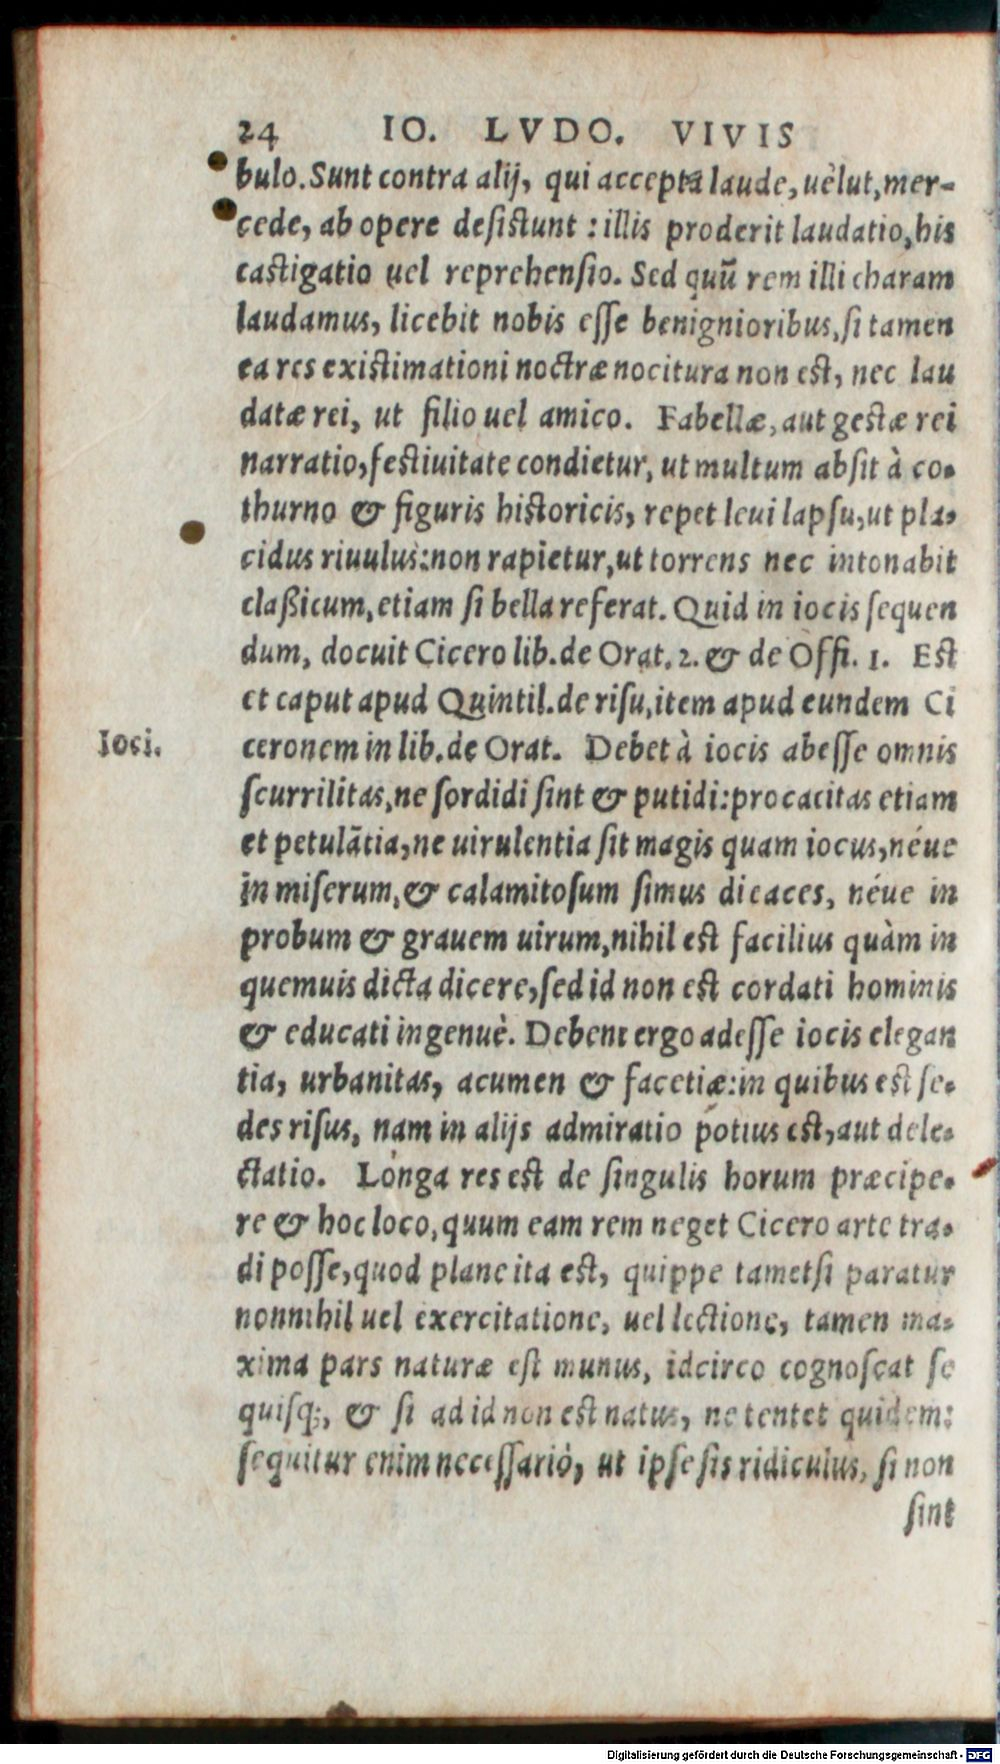 24 IO. LVDO. VIVIS
bulo. Sunt contra alij, qui accepta laude, uèlut, mer-
cede, ab opere desistunt: illis proderit laudatio, his
castigatio uel reprehensio. Sed quū rem illi charam
laudamus, licebit nobis esse benignioribus, si tamen
ea res existimationi noctræ nocitura non est, nec lau
datæ rei, ut filio uel amico. Fabellæ, aut gestæ rei
narratio, festiuitate condietur, ut multum absit à co-
thurno & figuris historicis, repet leui lapsu, ut pla-
cidus riuulus: non rapietur, ut torrens nec intonabit
claßicum, etiam si bella referat. Quid in iocis sequen
dum, docuit Cicero lib. de Orat. 2. & de Offi. 1. Est
et caput apud Quintil. de risu, item apud eundem Ci
Ioci.
ceronem in lib. de Orat. Debet à iocis abesse omnis
scurrilitas, ne sordidi sint & putidi: procacitas etiam
et petulātia, ne uirulentia sit magis quam iocus, néue
in miserum, & calamitosum simus dicaces, néue in
probum & grauem uirum, nihil est facilius quàm in
quemuis dicta dicere, sed id non est cordati hominis
& educati ingenuè. Debent ergo adesse iocis elegan
tia, urbanitas, acumen & facetiæ: in quibus est se-
des risus, nam in alijs admiratio potius est, aut dele-
ctatio. Longa res est de singulis horum præcipe-
re & hoc loco, quum eam rem neget Cicero arte tra-
di posse, quod plane ita est, quippe tametsi paratur
nonnihil uel exercitatione, uel lectione, tamen ma-
xima pars naturæ est munus, idcirco cognoscat se
quisq;, & si ad id non est natus, ne tentet quidem:
sequitur enim necessariò, ut ipse sis ridiculus, si non
sint
Digitalisierung gefördert durch die Deutsche Forschungsgemeinschaft - DFG